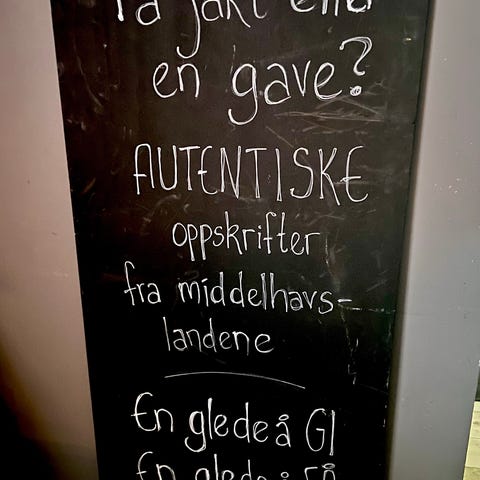 På jakt etter
en gave?
AUTENTISKE
oppskrifter
fra middelhavs-
landene
En glede å GI
En glede å FÅ